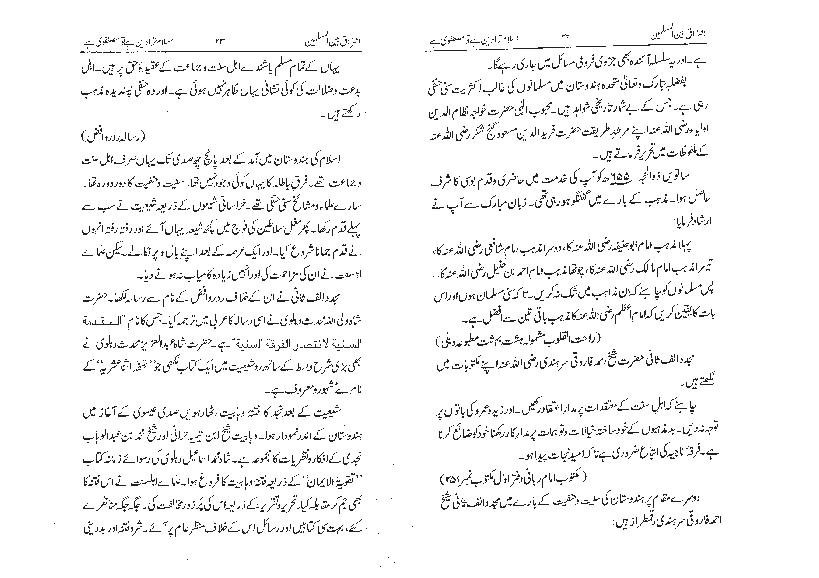 افتراق بین المسلمین ۲۲ اسلام قرآدین ہے تو مصطفوی ہے
ہے۔ اور یہ سلسلہ آئندہ بھی جزوی فروعی مسائل میں جاری رہے گا۔
بفضلہ تبارک وتعالیٰ متحدہ ہندوستان میں مسلمانوں کی غالب اکثریت سنی حنفی
رہی ہے۔ جس کے بے شمار تاریخی شواہد ہیں۔ محبوب الٰہی حضرت خواجہ نظام الدین
اولیاء رضی اللہ عنہ اپنے مرشد طریقت حضرت فرید الدین مسعود گنج شکر رضی اللہ عنہ
کے ملفوظات میں تحریر فرماتے ہیں۔
ساتویں ذوالحجہ ۶۵۵ھ کو آپ کی خدمت میں حاضری وقدم بوسی کا شرف
حاصل ہوا۔ مذہب کے بارے میں گفتگو ہو رہی تھی۔ زبان مبارک سے آپ نے
ارشاد فرمایا۔
پہلا مذہب امام ابوحنیفہ رضی اللہ عنہ کا، دوسرا مذہب امام شافعی رضی اللہ عنہ کا،
تیسرا مذہب امام مالک رضی اللہ عنہ کا، چوتھا مذہب امام احمد بن حنبل رضی اللہ عنہ کا،
پس مسلمانوں کو چاہئے کہ ان مذاہب میں شک نہ کریں۔ تاکہ سنی مسلمان ہوں اور اس
بات کا یقین کریں کہ امام اعظم رضی اللہ عنہ کا مذہب باقی تین سے افضل ہے۔
(راحت القلوب مشمولہ ہشت بہشت مطبوعہ دہلی)
مجدد الف ثانی حضرت شیخ احمد فاروقی سرہندی رضی اللہ عنہ اپنے مکتوبات میں
لکھتے ہیں۔
چاہئے کہ اہل سنت کے معتقدات پر مدار اعتقاد رکھیں۔ اور زید وعمرو کی باتوں پر
توجہ نہ دیں۔ بدمذہبوں کے خود ساختہ خیالات وتوہمات پر مدار کار رکھنا خود کو ضائع کرنا
ہے۔ فرقہ ناجیہ کی اتباع ضروری ہے تاکہ امید نجات پیدا ہو۔
(مکتوب امام ربانی دفتر اول مکتوب نمبر ۲۵۱)
دوسرے مقام پر ہندوستان کی سنیت وحنفیت کے بارے میں مجدد الف ثانی شیخ
احمد فاروقی سرہندی رقمطراز ہیں:
افتراق بین المسلمین ۲۳ اسلام قرآدین ہے تو مصطفوی ہے
یہاں کے تمام مسلم باشندے اہل سنت وجماعت کے عقیدۂ حق پر ہیں۔ اہل
بدعت وضلالت کی کوئی نشانی یہاں ظاہر نہیں ہوتی ہے۔ اور وہ حنفی پسندیدہ مذہب
رکھتے ہیں۔
(رسالہ رد روافض)
اسلام کی ہندوستان میں آمد کے بعد پانچ چھ صدی تک یہاں صرف اہل سنت
وجماعت تھے۔ فرق باطلہ کا یہاں کوئی وجود نہیں تھا۔ سنیت وحنفیت کا دور دورہ تھا۔
سارے علماء ومشائخ سنی حنفی تھے۔ خراسانی شیعوں کے ذریعہ شیعیت نے سب سے
پہلے قدم رکھا۔ پھر مغل سلاطین کی فوج میں کچھ شیعہ یہاں آئے اور رفتہ رفتہ انہوں
نے قدم جمانا شروع کیا۔ اور ایک عرصہ کے بعد اپنے بال وپر نکالے۔ لیکن علمائے
اہلسنت نے ان کی مزاحمت کی اور انہیں زیادہ کامیاب نہ ہونے دیا۔
مجدد الف ثانی نے ان کے خلاف رد روافض کے نام سے رسالہ لکھا۔ حضرت
شاہ ولی اللہ محدث دہلوی نے اسی رسالہ کا عربی میں ترجمہ کیا۔ جس کا نام "المقدمة
السنية لانتصار الفرقة السنية" ہے۔ حضرت شاہ عبدالعزیز محدث دہلوی نے
بھی بڑی شرح وبسط کے ساتھ رد شیعیت میں ایک کتاب لکھی جو "تحفہ اثنا عشریہ" کے
نام سے مشہور ومعروف ہے۔
شیعیت کے بعد نجد کا فتنۂ وہابیت اٹھارہویں صدی عیسوی کے آغاز میں
ہندوستان کے اندر نمودار ہوا۔ وہابیت شیخ ابن تیمیہ حرانی اور شیخ محمد بن عبدالوہاب
نجدی کے افکار ونظریات کا مجموعہ ہے۔ شاہ محمد اسماعیل دہلوی کی رسوائے زمانہ کتاب
"تقویۃ الایمان" کے ذریعہ فتنہ وہابیت کا فروغ ہوا۔ علمائے اہلسنت نے اس فتنہ کا
بھی جم کر مقابلہ کیا۔ تحریر وتقریر کے ذریعہ اس کی پر زور مخالفت کی۔ جگہ جگہ مناظرے
کئے، بہت سی کتابیں اور رسائل اس کے خلاف منظر عام پر آئے۔ شر وفتنہ اور بددینی